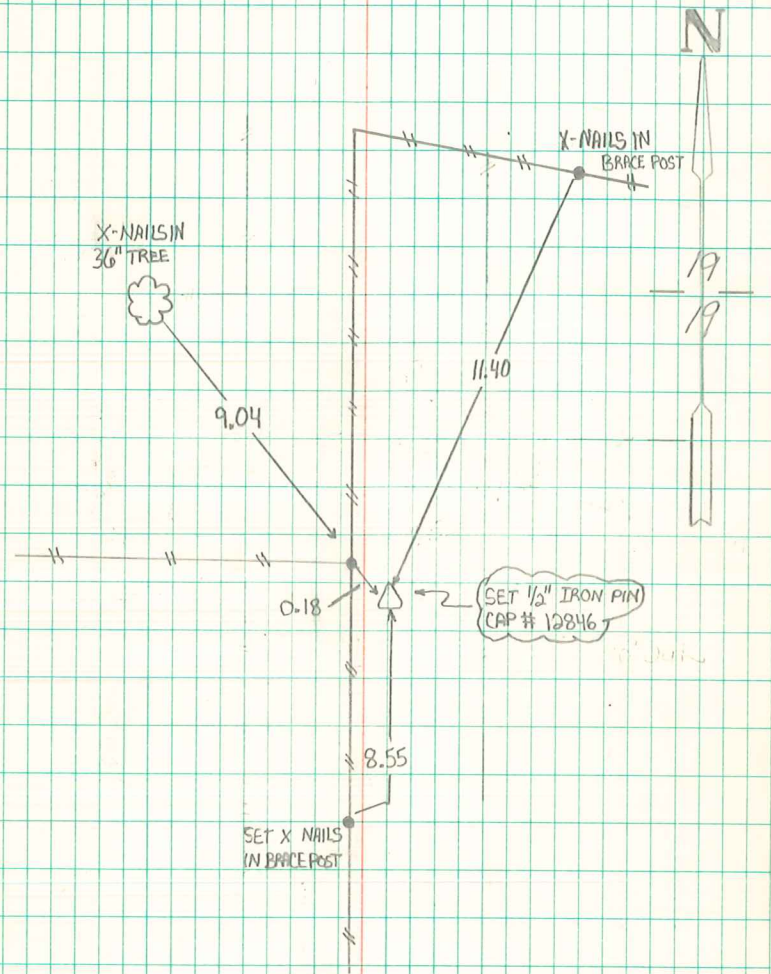 N
X-NAILS IN
BRACE POST
X-NAILS IN
36" TREE
19
19
11.40
9.04
0.18
SET 1/2" IRON PIN
CAP # 12846
8.55
SET X NAILS
IN BRACE POST